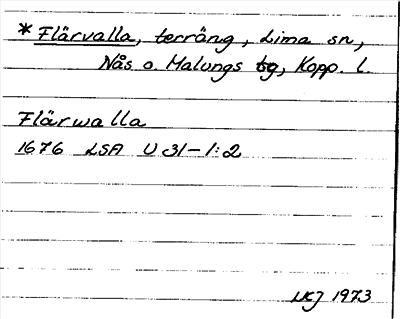 * Flärvalla, terräng, Lima sn,
Nås o. Malungs tg, Kopp. l.
Flärwalla
1676 LSA U 31-1:2
1973